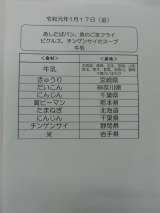 令和元年1月17日（金）
あしたばパン、魚のごまフライ
ピクルス、チンゲンサイのスープ
牛乳
＜食材＞ ＜産地＞
牛乳
きゅうり 宮崎県
だいこん 神奈川県
にんじん 千葉県
黄ピーマン 熊本県
たまねぎ 北海道
にんじん 千葉県
チンゲンサイ 静岡県
岩手県